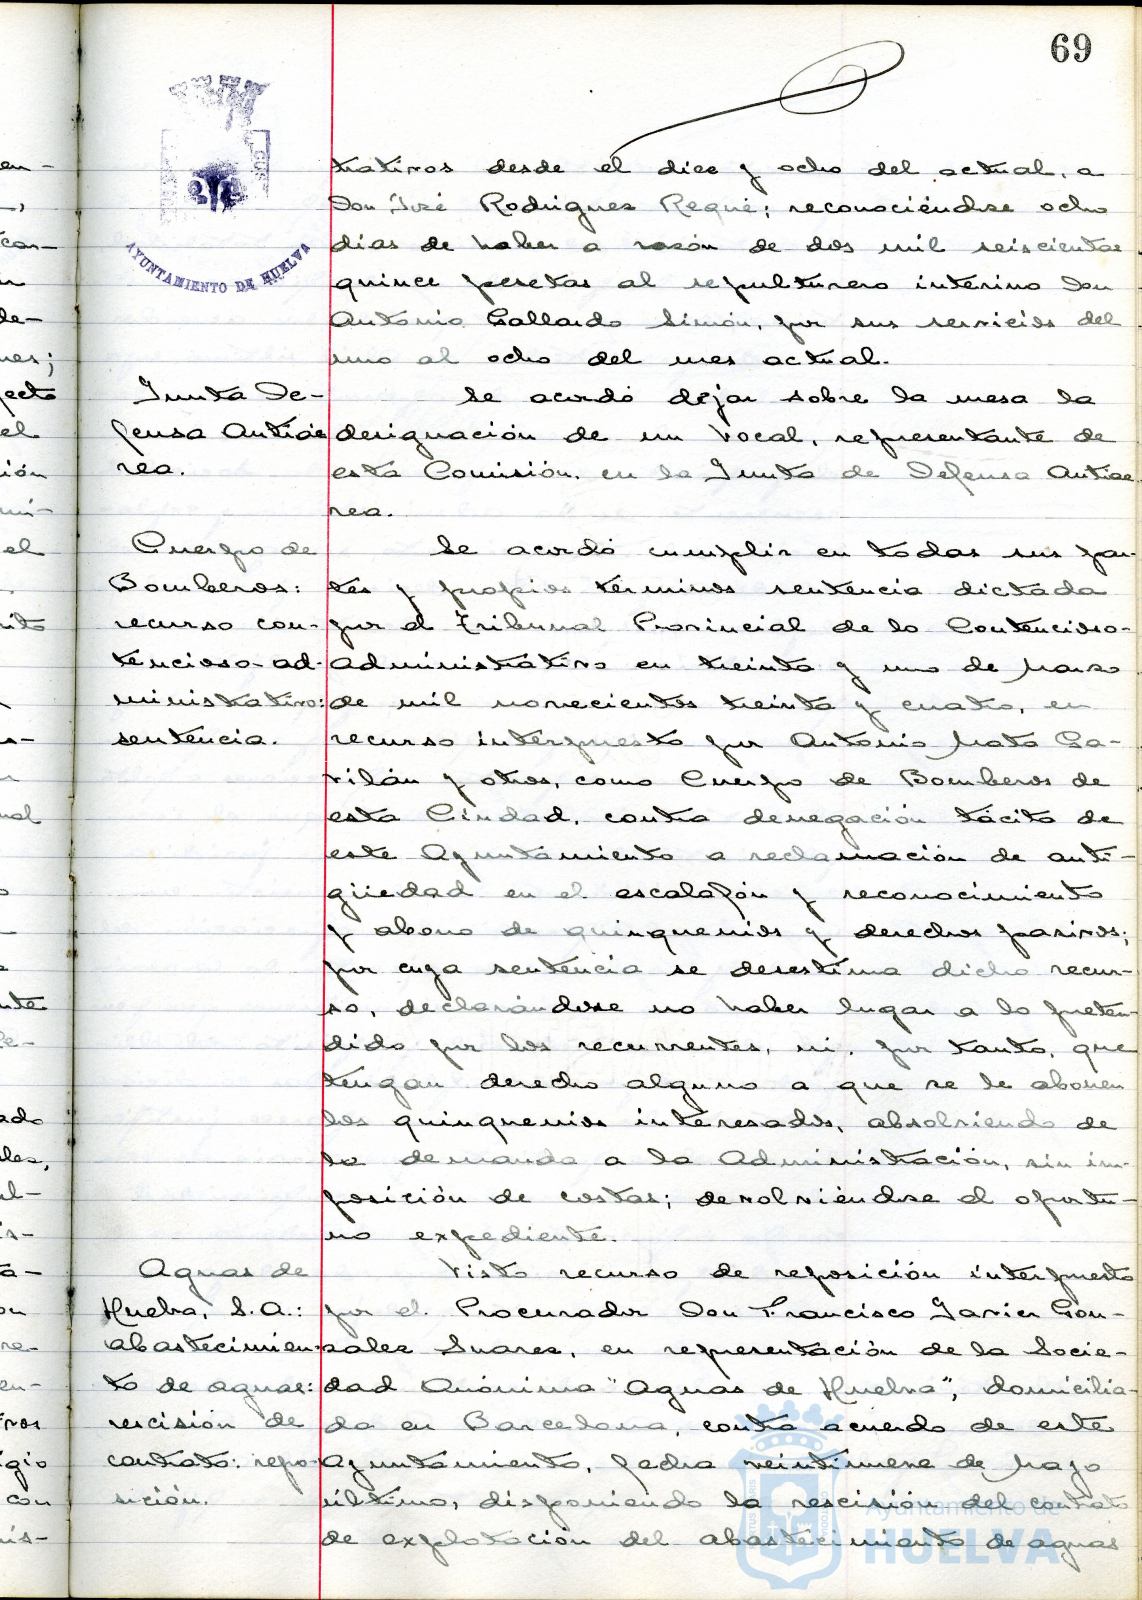 69
AYUNTAMIENTO DE HUELVA
trativos desde el diez y ocho del actual, a
Don José Rodrigues Requé; reconociéndose ocho
dias de haber a razón de dos mil seiscientas
quince pesetas al sepulturero interino Don
Antonio Gallardo Simón, por sus servicios del
uno al ocho del mes actual.
Junta De-
fensa Antiaé
rea.
Se acordó dejar sobre la mesa la
designación de un vocal, representante de
esta Comisión, en la Junta de Defensa Antiaé
rea.
Cuerpo de
Bomberos:
recurso con-
tencioso-ad-
ministrativo:
sentencia.
Se acordó cumplir en todas sus par-
tes y propios términos sentencia dictada
por el Tribunal Provincial de lo Contencioso-
administrativo en treinta y uno de Marzo
de mil novecientos treinta y cuatro, en
recurso interpuesto por Antonio Mato Ga-
vilán y otros, como Cuerpo de Bomberos de
esta Ciudad, contra denegación tácita de
este Ayuntamiento a reclamación de anti-
güedad en el escalafón y reconocimiento
y abono de quinquenios y derechos pasivos;
por cuya sentencia se desestima dicho recur-
so, declarándose no haber lugar a lo preten-
dido por los recurrentes, ni, por tanto, que
tengan derecho alguno a que se le abonen
los quinquenios interesados, absolviendo de
la demanda a la Administración, sin im-
posición de costas; devolviéndose el oportu-
no expediente.
Aguas de
Huelva, S.A.:
abastecimien-
to de aguas:
rescisión de
contrato: repo-
sición.
Visto recurso de reposición interpuesto
por el Procurador Don Francisco Javier Gon-
zalez Suarez, en representación de la Socie-
dad Anónima "Aguas de Huelva", domicilia-
da en Barcelona, contra acuerdo de este
Ayuntamiento, fecha veintinueve de Mayo
último, disponiendo la rescisión del contrato
de explotación del abastecimiento de aguas
Ayuntamiento de
HUELVA